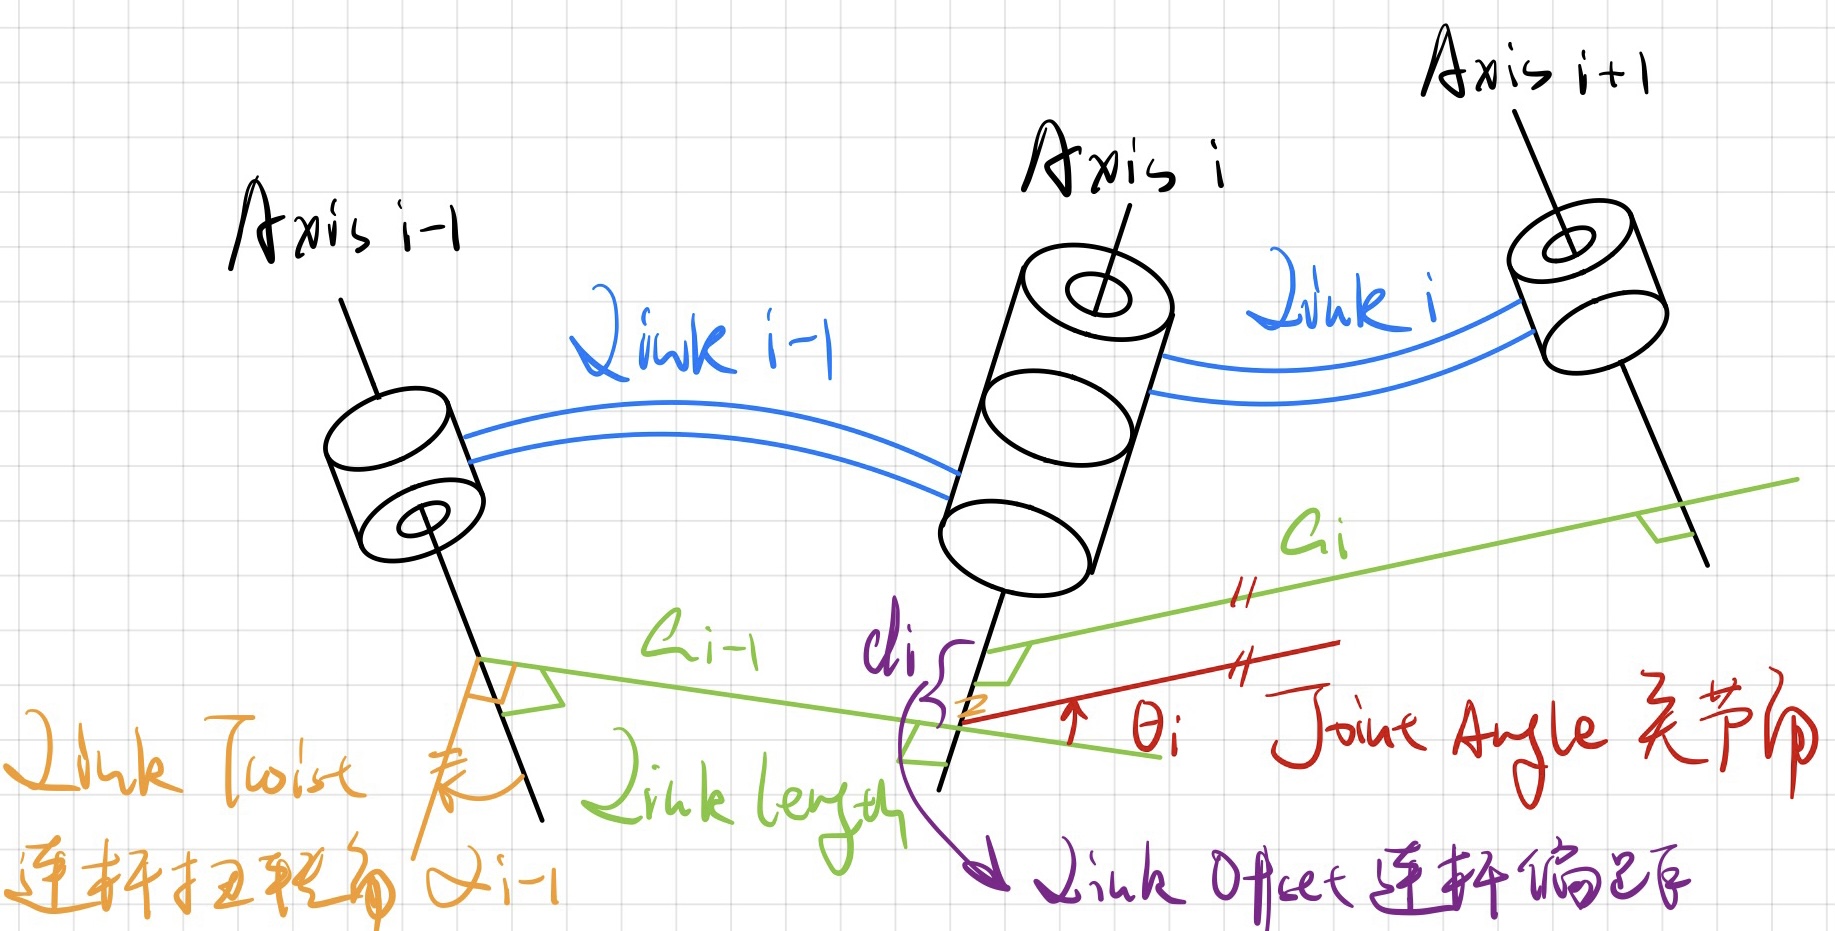 Axis i+1
Axis i
Axis i-1
Link i
Link i-1
ai
ai-1
di
θi Joint Angle 关节角
Link Twist
Link length
连杆扭转角 αi-1
Link Offset 连杆偏距